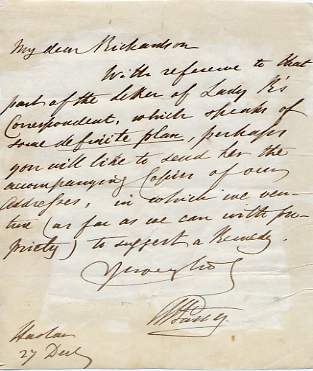 My dear Richardson
With reference to that
part of the letter of Lady R's
Correspondent, which speaks of
some definite plan, perhaps
you will like to send her the
accompanying Copies of our
Addresses, in which we ven-
ture (as far as we can with pro-
priety) to suggest a Remedy.
Yours truly
Haslar
27 Decr